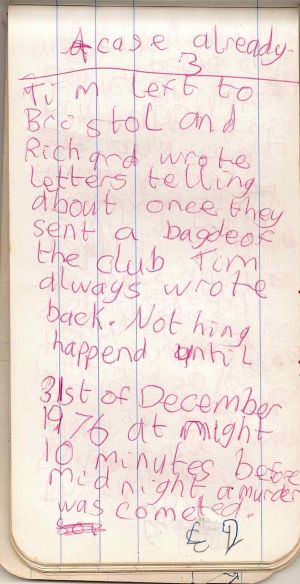 A case already.
3
Tim left to
Bristol and
Richard wrote
letters telling
about once they
sent a bagde of
the club Tim
always wrote
back. Nothing
happend until
31st of December
1976 at might
10 minutes before
midnight a murder
was cometed.